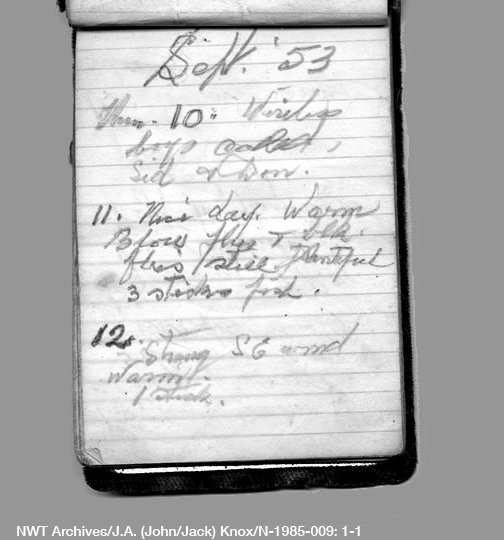 Sept. '53
Thur. 10. Wireless
boys called,
Sid & Don.
11. Nice day. Warm
Blow flys & blk.
flies still plentiful
3 sticks fish.
12.
Strong SE wind
Warm.
1 stick.
NWT Archives/J.A. (John/Jack) Knox/N-1985-009: 1-1